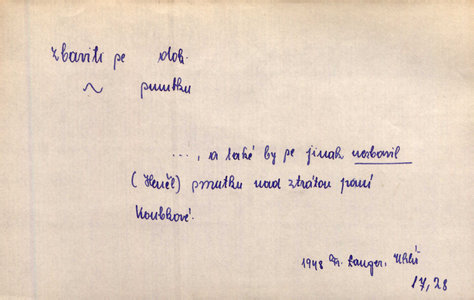 Zbaviti se dok.
~ smutku
..., a také by se jinak nezbavil
(Henél) smutku nad ztrátou paní
Koubkové.
1948 Fr. Langer,
17, 28